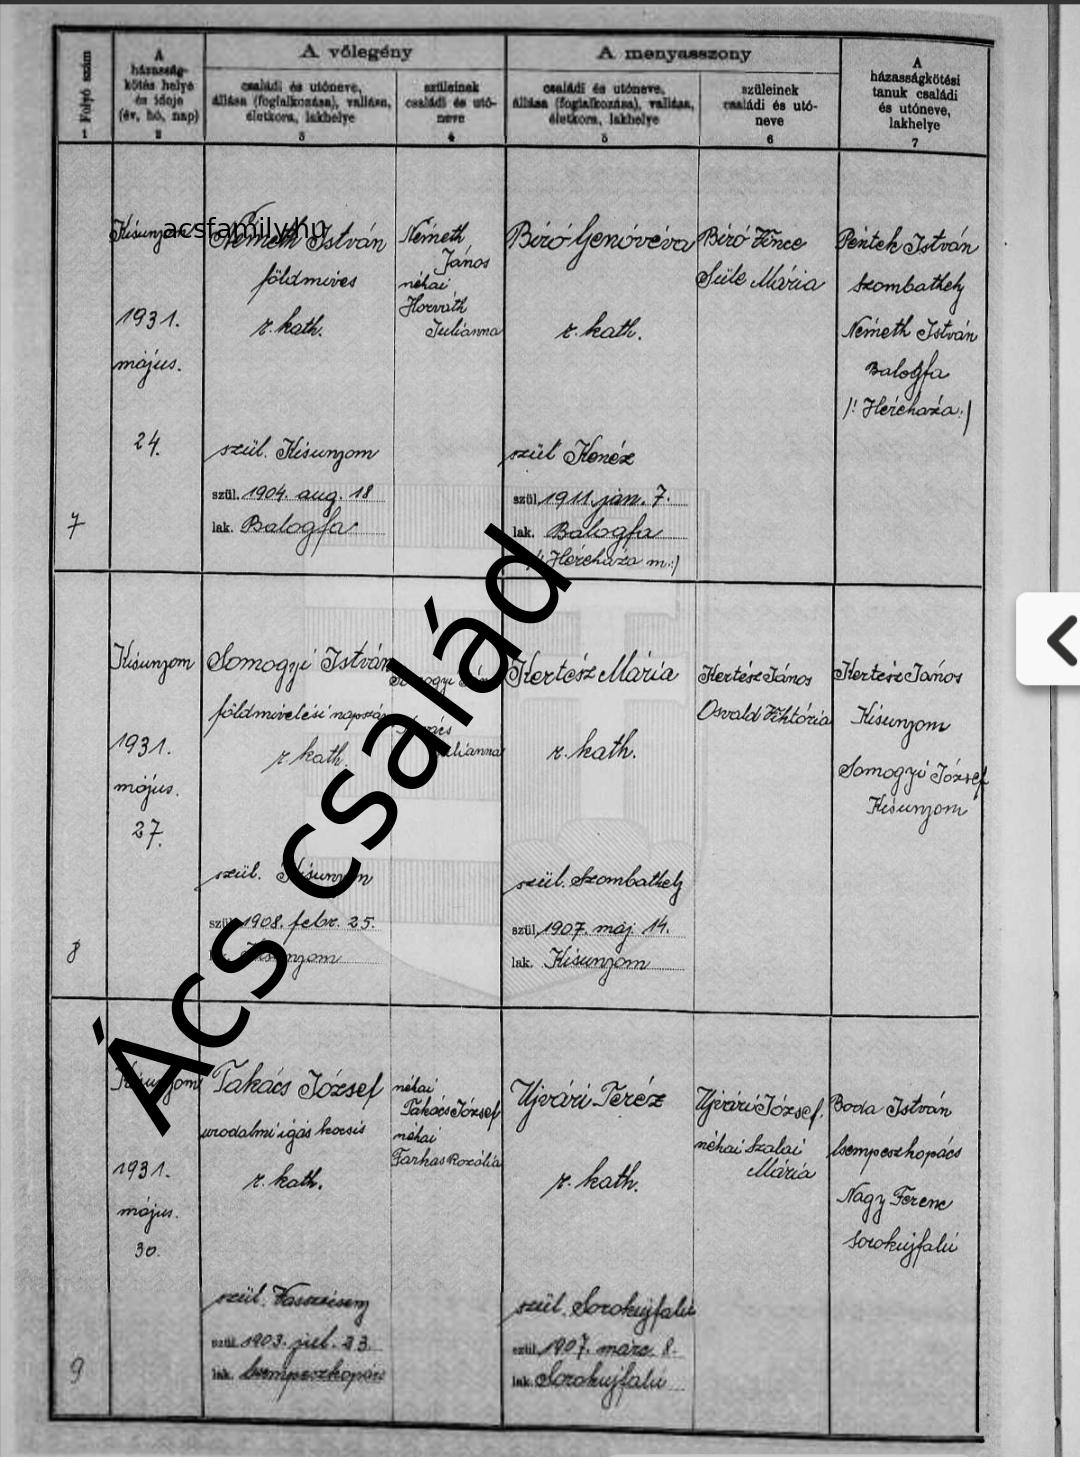 A vőlegény
A menyasszony
Folyó szám
1
A
házasság-
kötés helye
és ideje
(év, hó, nap)
2
családi és utóneve,
állása (foglalkozása), vallása,
életkora, lakhelye
3
szüleinek
családi és utó-
neve
4
családi és utóneve,
állása (foglalkozása), vallása,
életkora, lakhelye
5
szüleinek
családi és utó-
neve
6
A
házasságkötési
tanuk családi
és utóneve,
lakhelye
7
7
Kisunyom
1931.
május.
24.
acsfamily.hu
Németh István
földmíves
r. kath.
szül. Kisunyom
szül. 1904. aug. 18
lak. Balogfa
Németh
János
néhai
Horváth
Julianna
Bíró Genovéva
r. kath.
szül Kenéz
szül. 1911. jan. 7.
lak. Balogfa
/: Héreháza m.:/
Bíró Vince
Süle Mária
Péntek István
Szombathely
Németh István
Balogfa
/: Héreháza:/
8
Kisunyom
1931.
május.
27.
Somogyi István
földmívelési napszám
r. kath.
szül. Kisunyom
szül. 1908. febr. 25.
Kisunyom
Somogyi
Julianna
Kertész Mária
r. kath.
szül. Szombathely
szül. 1907. máj. 14.
lak. Kisunyom
Kertész János
Osvald Viktória
Kertész János
Kisunyom
Somogyi József
Kisunyom
Ács család
9
Kisunyom
1931.
május.
30.
Takács József
urodalmi igás kocsis
r. kath.
szül. Vasszécseny
szül. 1903. jul. 23.
lak. Csempeszkopács
néhai
Takács József
néhai
Farkas Rozália
Ujvári Teréz
r. kath.
szül. Sorokujfalu
szül. 1907. márc. 8.
lak. Sorokujfalu
Ujvári József.
néhai Szalai
Mária
Boda István
Csempeszkopács
Nagy Ferenc
Sorokujfalu